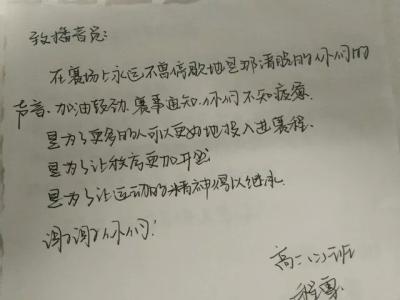 致播音员:
在赛场上永远不曾停歇地是那清脆的你们的
声音、加油鼓劲、赛事通知、你们不知疲惫.
是为了更多的人可以更好地投入进赛程.
是为了让校店更加
是为了让运动的精神得以继承.
谢谢你们!
高二(2)班
程